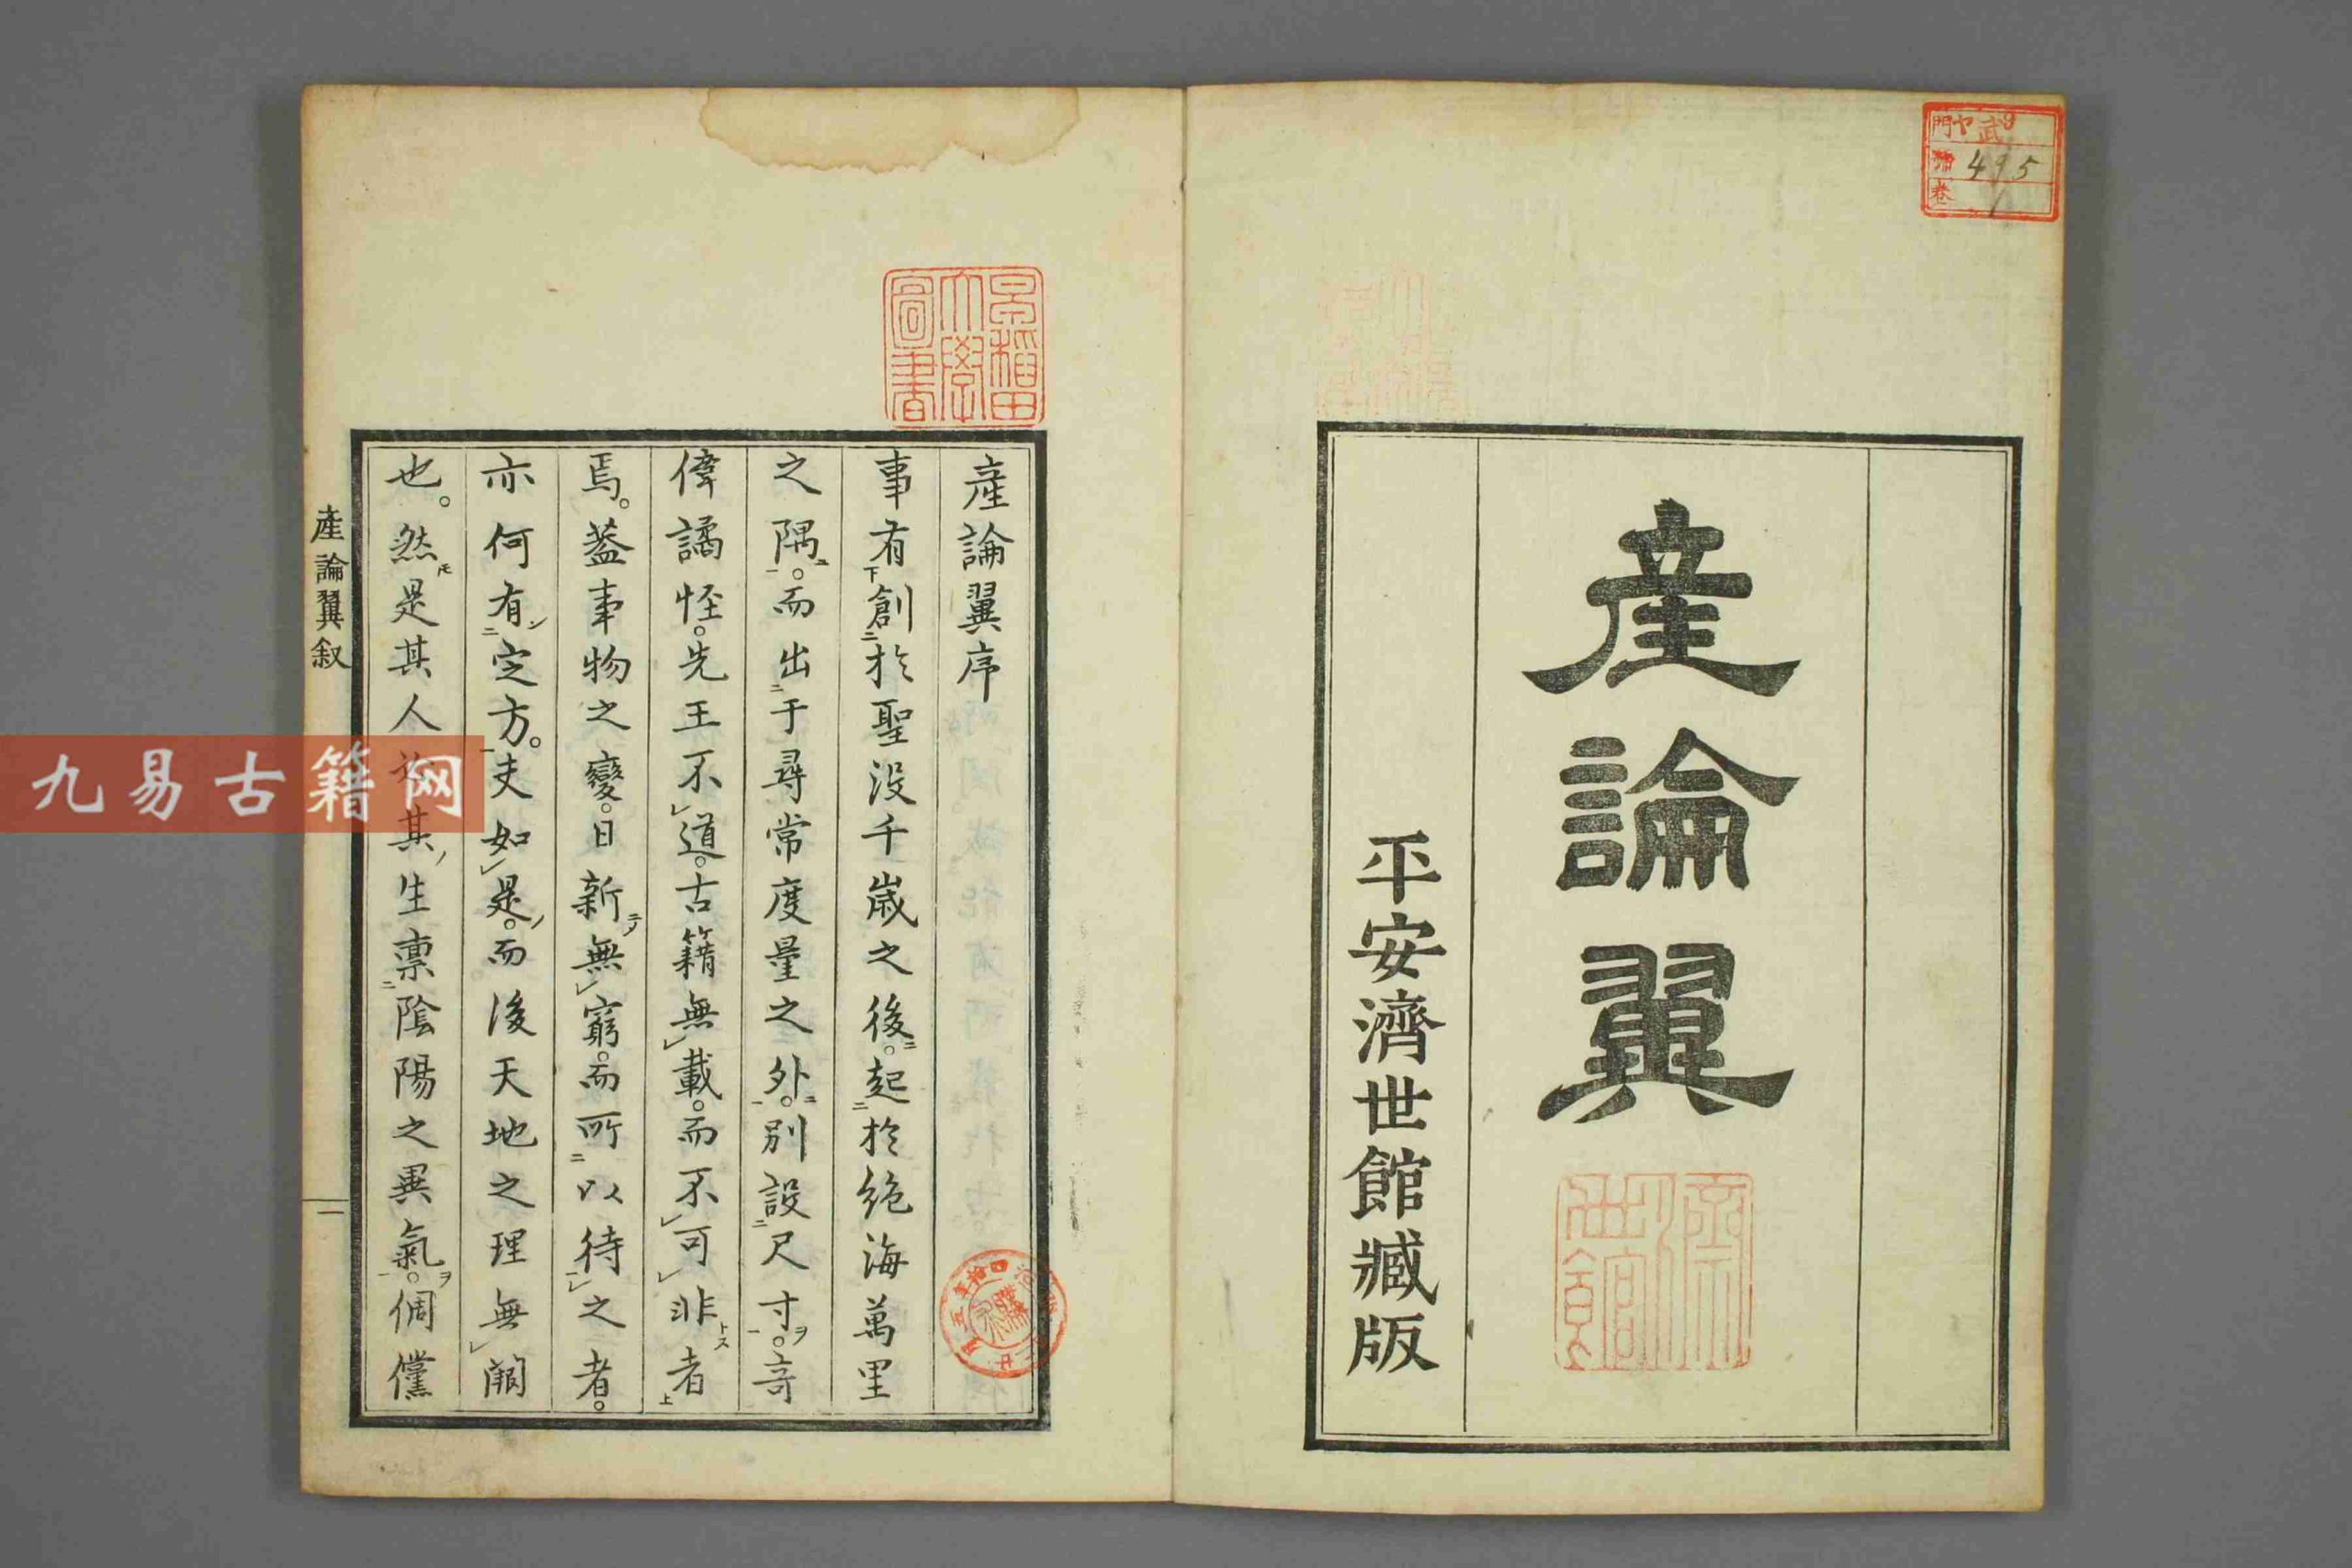 産論翼
平安濟世館臧版
濟世館
門 ヤ 武9
495
卷
早稲田大學圖書
産論翼序
事有創於聖没千歳之後。起於絶海萬里
之隅。而出于尋常度量之外。別設尺寸。奇
偉譎怪。先王不道。古籍無載。而不可非者
焉。蓋事物之變。日新無窮。而所以待之者。
亦何有定方。夫如是。而後天地之理無
也。然是其人 其生禀陰陽之異氣。倜儻
産論翼叙
一
九易古籍网